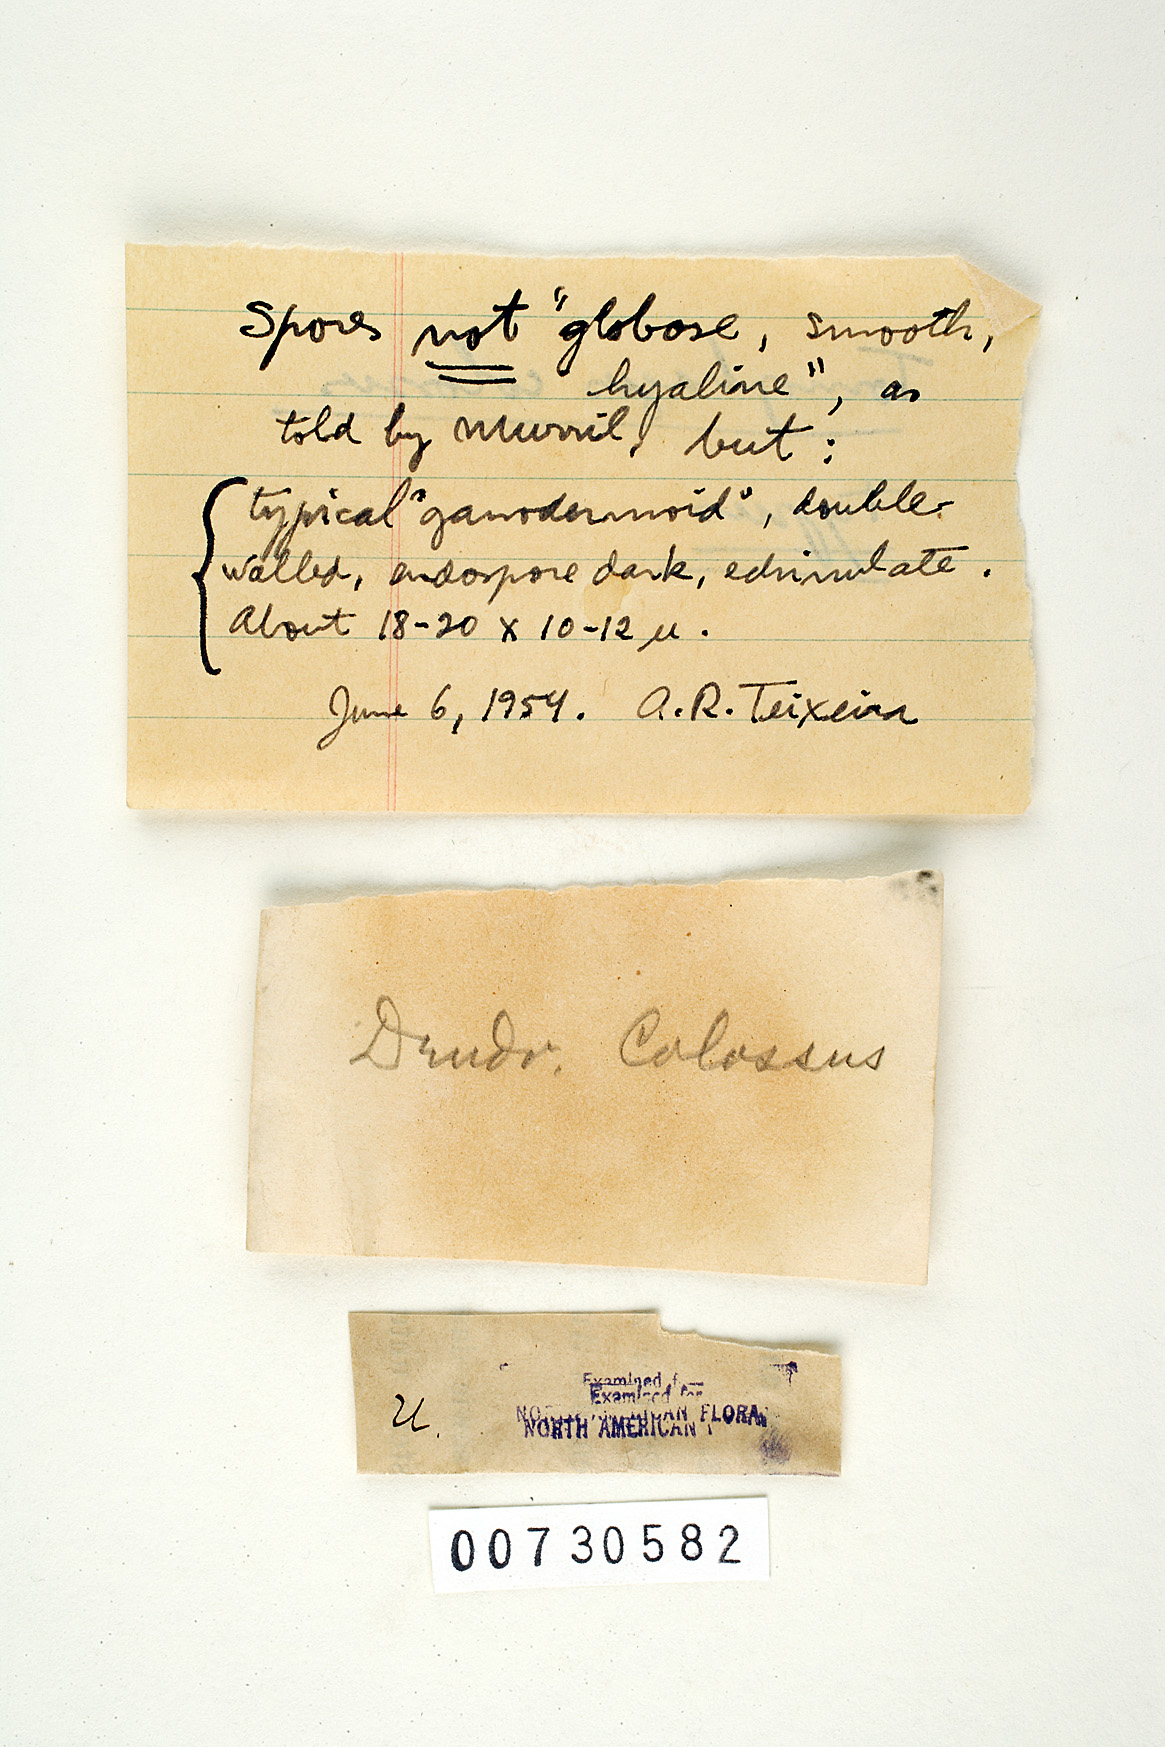 Spores not "globose, smooth,
hyaline", as
told by Murril, but:
typical "ganodermoid", double-
walled, endospore dark, echinulate.
About 18-20 x 10-12 µ.
June 6, 1954. A.R. Teixeira
Dendr. Colossus
U.
Examined for
Examined for
NORTH AMERICAN FLORA
NORTH AMERICAN F
00730582